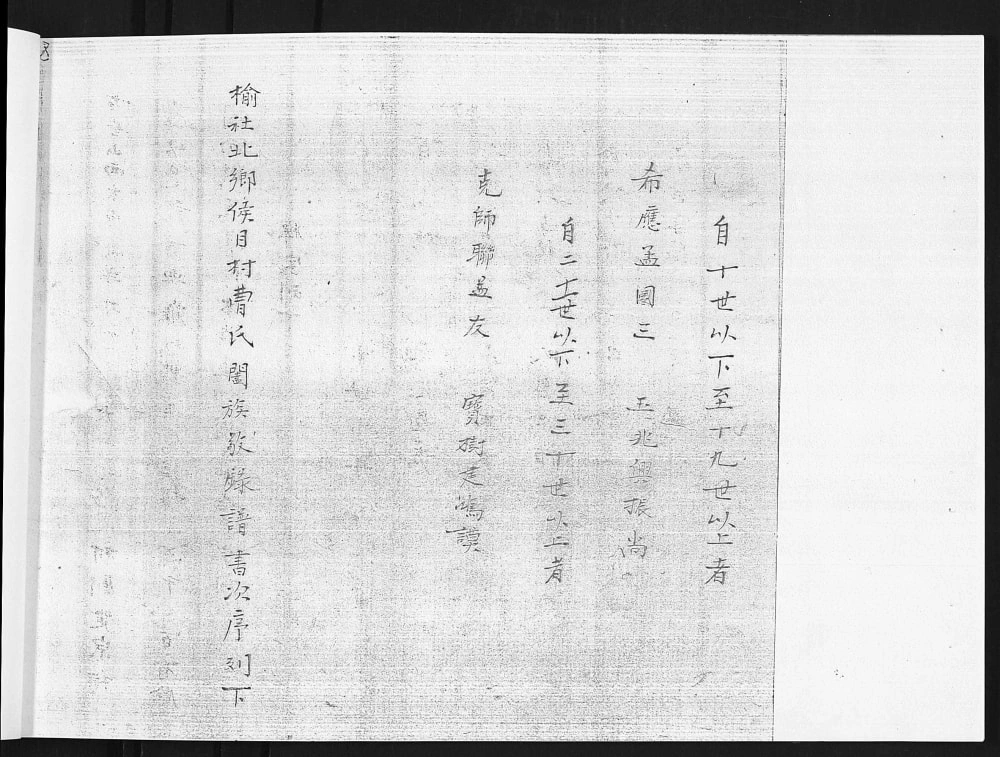 自十世以下至十九世以上者
希應孟國三 玉兆興振尚
自二十世以下至三十世以上者
克師聯孟友 寶樹走鴻謨
榆社北鄉侯目村曹氏閤族敬錄譜書次序列下